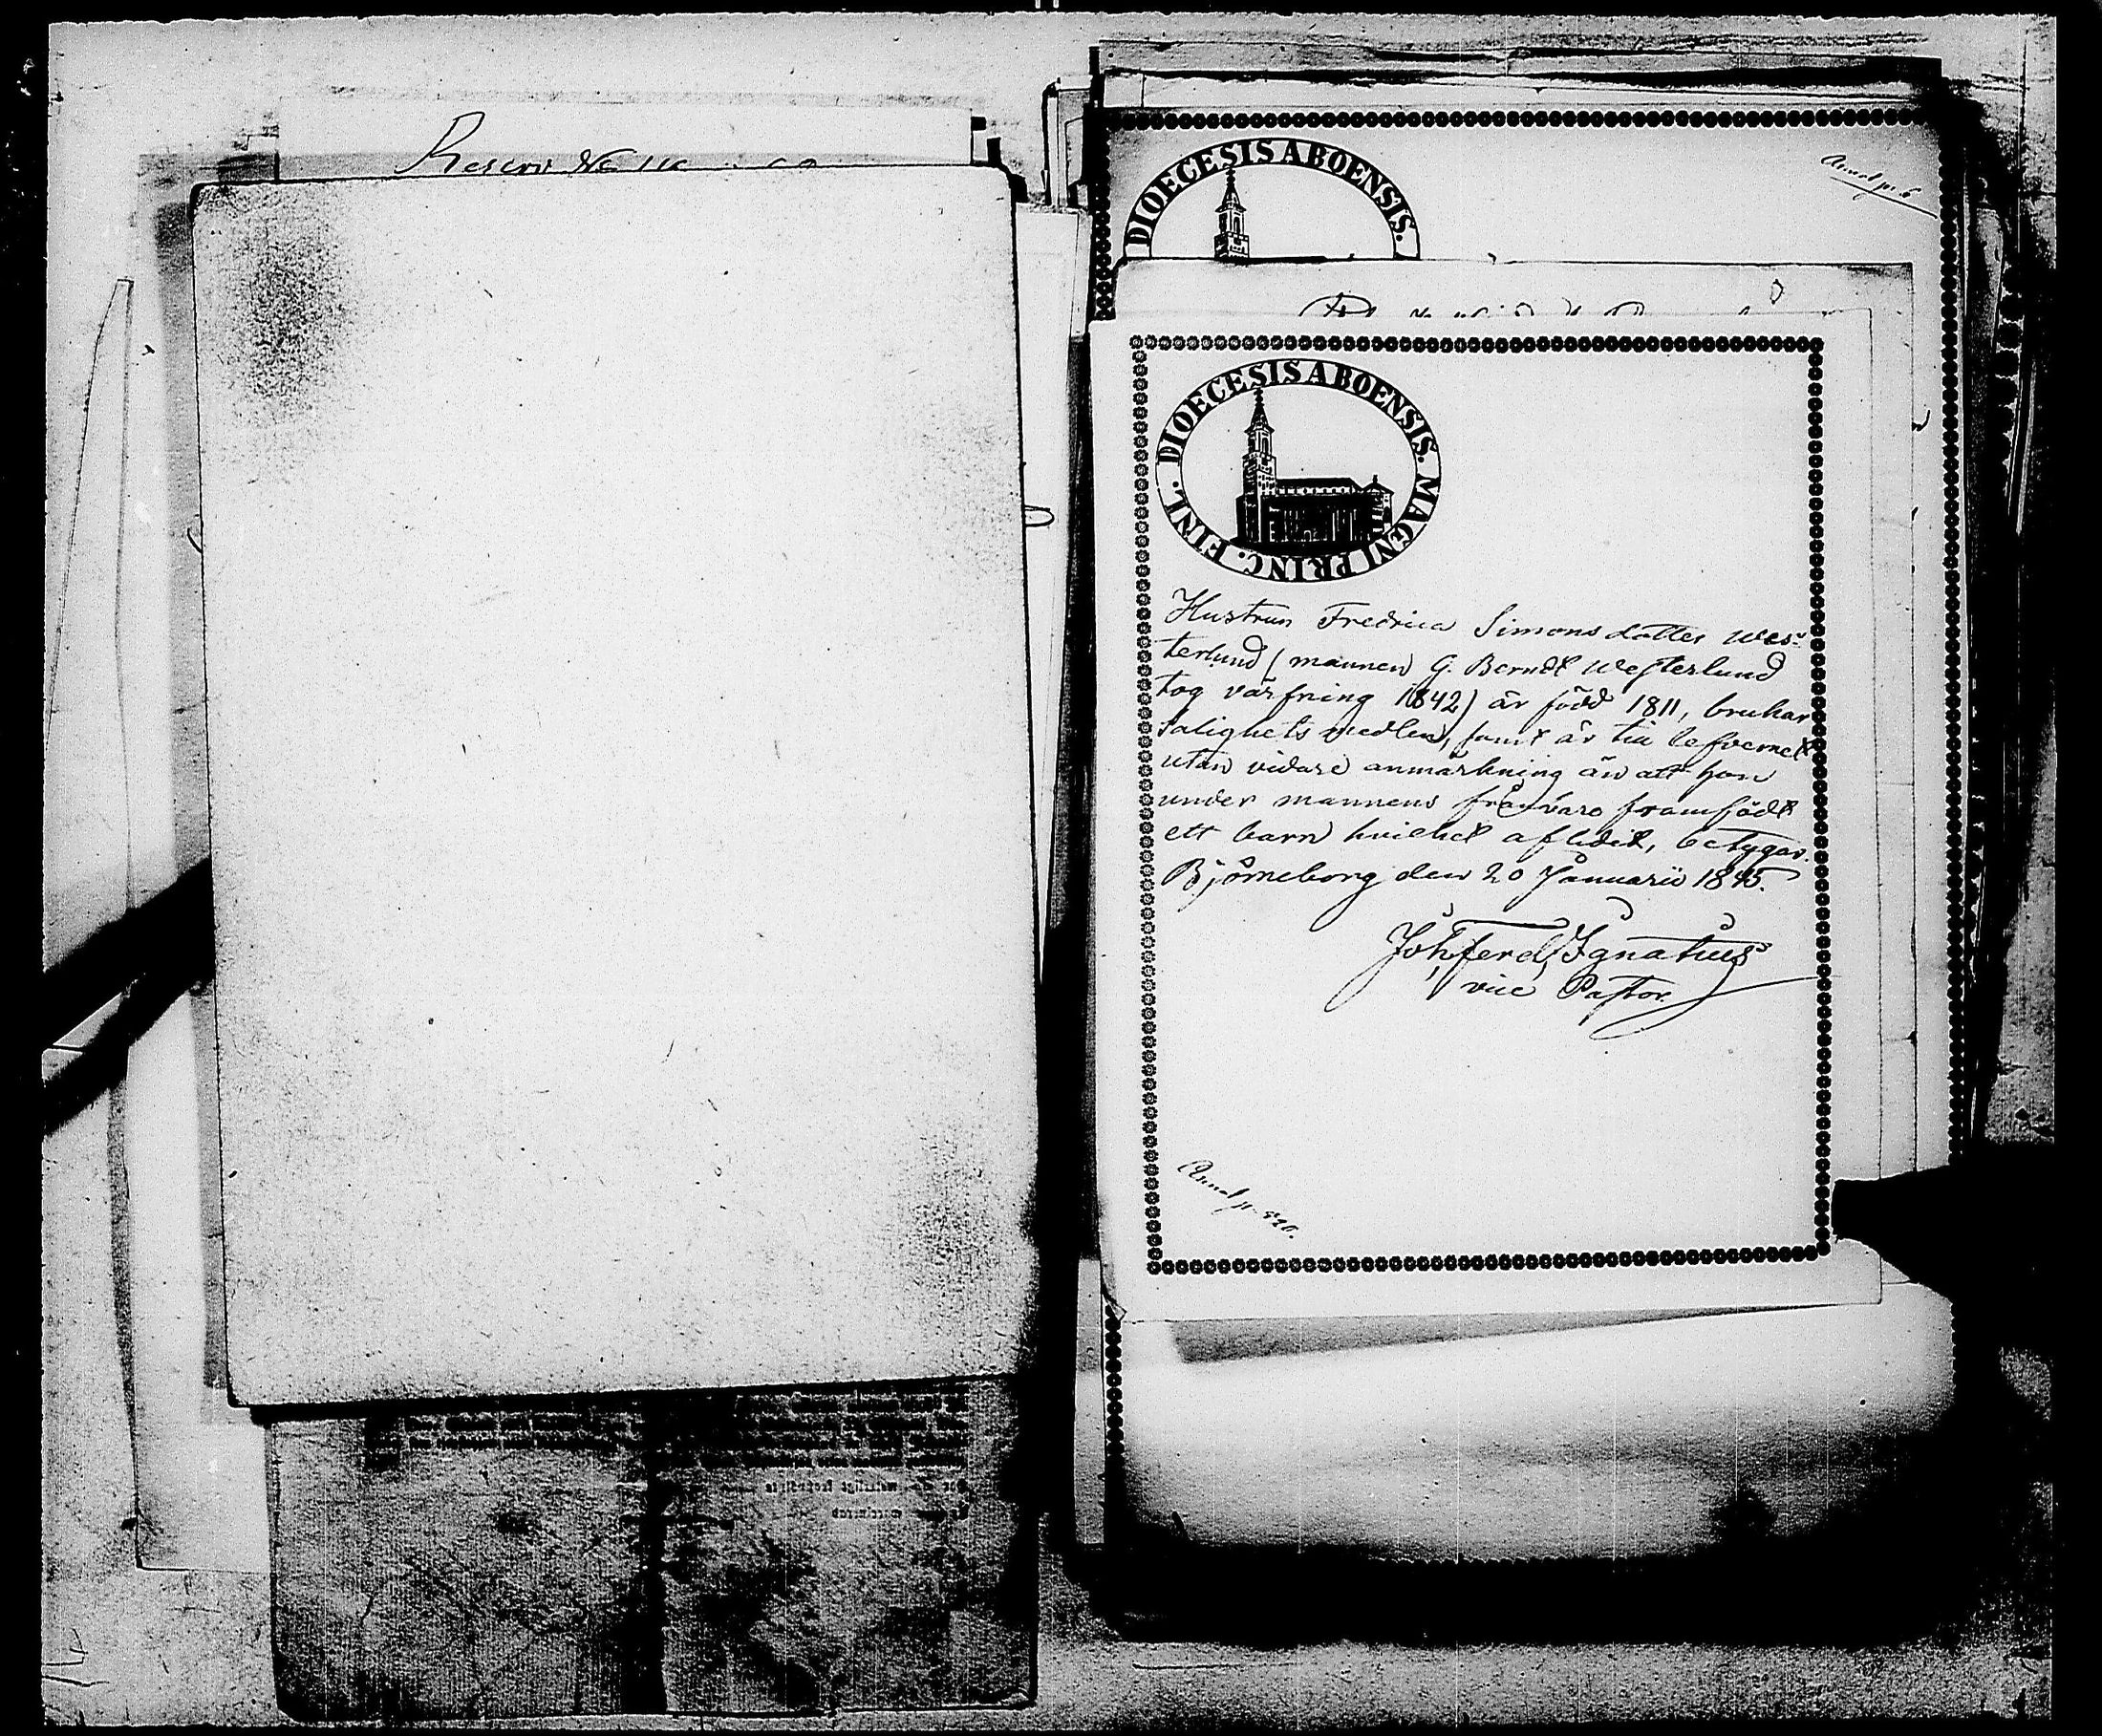 DIOECESIS ABOENSIS.
DIOECESIS ABOENSIS. MAGNI PRINC. FINL.
Hustrun Fredrica Simonsdotter Wes-
terlund (mannen G. Berndt Westerlund
tog värfning 1842) är född 1811, brukar
salighets medlen, samt är till lefvernet
utan vidare anmärkning än att hon
under mannens frånvaro framfödt
ett barn hvilket aflidit, betygar.
Björneborg den 20 Januarii 1845.
Joh Ferd Ignatius
vice Pastor